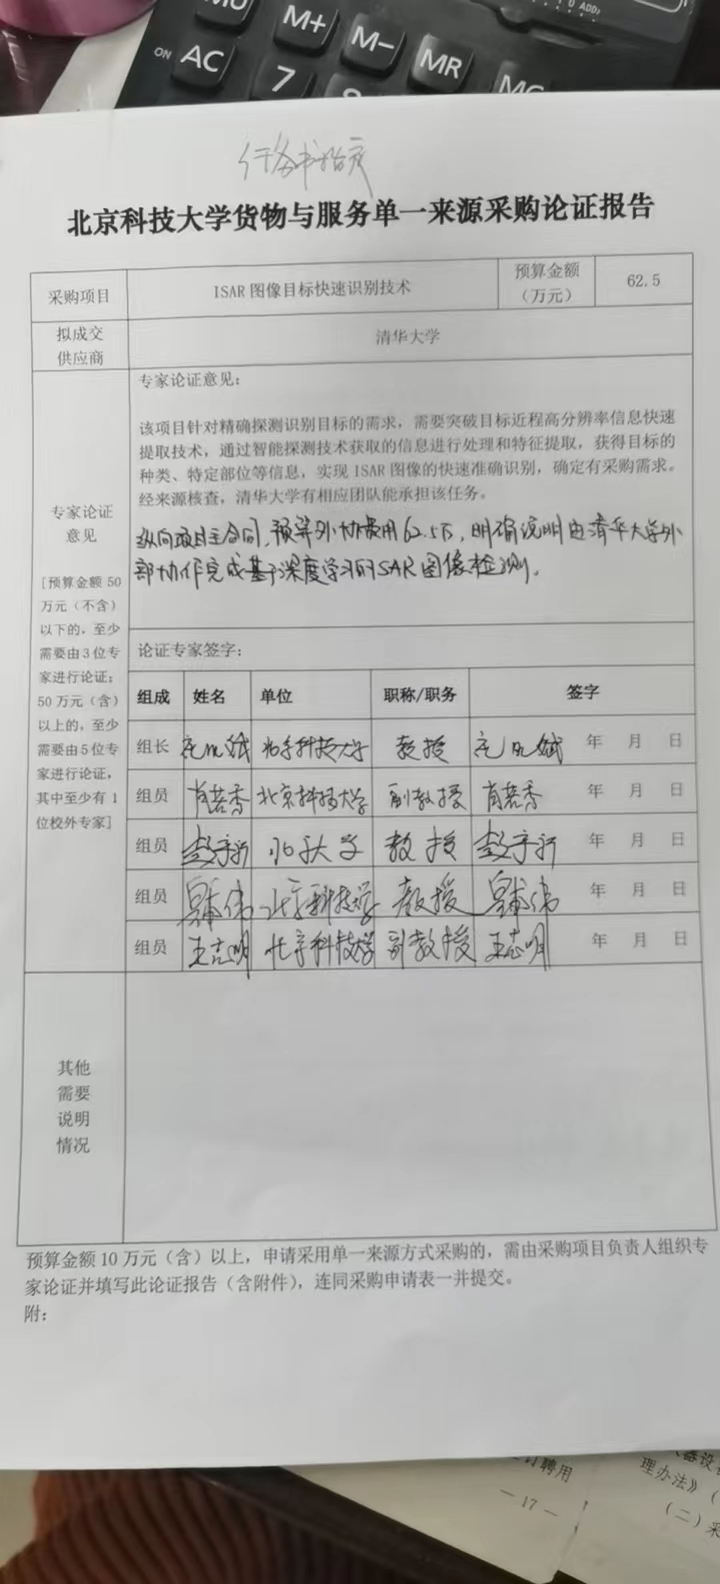 MU M+ M- MR MC
ON AC 7 8
任务书指定
北京科技大学货物与服务单一来源采购论证报告
采购项目 ISAR 图像目标快速识别技术 预算金额（万元） 62.5
拟成交供应商 清华大学
专家论证意见
[预算金额 50
万元（不含）
以下的，至少
需要由 3 位专
家进行论证；
50 万元（含）
以上的，至少
需要由 5 位专
家进行论证，
其中至少有 1
位校外专家]
专家论证意见：
该项目针对精确探测识别目标的需求，需要突破目标近程高分辨率信息快速
提取技术，通过智能探测技术获取的信息进行处理和特征提取，获得目标的
种类、特定部位等信息，实现 ISAR 图像的快速准确识别，确定有采购需求。
经来源核查，清华大学有相应团队能承担该任务。
纵向项目主合同，预算外协费用62.5万，明确说明由清华大学外
部协作完成基于深度学习的SAR图像检测。
论证专家签字：
组成 姓名 单位 职称/职务 签字
组长 北京科技大学 教授 年 月 日
组员 肖若秀 北京科技大学 副教授 肖若秀 年 月 日
组员 北大学 教授 年 月 日
组员 北京科技大学 教授 年 月 日
组员 王志明 北京科技大学 副教授 王志明 年 月 日
其他
需要
说明
情况
预算金额 10 万元（含）以上，申请采用单一来源方式采购的，需由采购项目负责人组织专
家论证并填写此论证报告（含附件），连同采购申请表一并提交。
附：
订聘用
— 17 —
理办法》（
（二）采